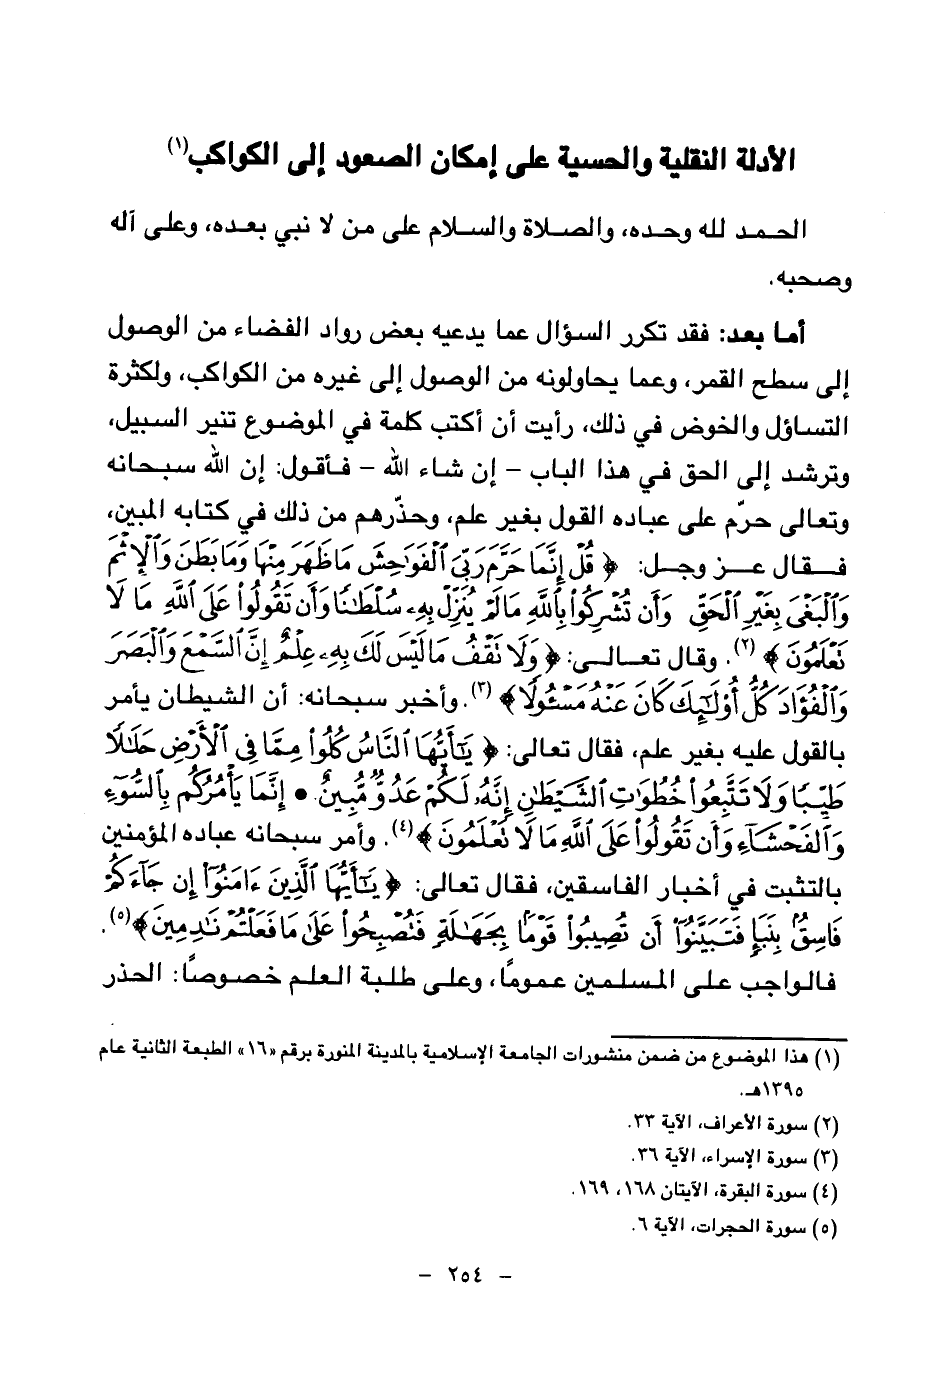 الأدلة النقلية والحسية على إمكان الصعود إلى الكواكب(١)
الحمد لله وحده، والصلاة والسلام على من لا نبي بعده، وعلى آله
وصحبه.
أما بعد: فقد تكرر السؤال عما يدعيه بعض رواد الفضاء من الوصول
إلى سطح القمر، وعما يحاولونه من الوصول إلى غيره من الكواكب، ولكثرة
التساؤل والخوض في ذلك، رأيت أن أكتب كلمة في الموضوع تنير السبيل،
وترشد إلى الحق في هذا الباب – إن شاء الله – فأقول: إن الله سبحانه
وتعالى حرّم على عباده القول بغير علم، وحذّرهم من ذلك في كتابه المبين،
فقال عز وجل: ﴿ قُلْ إِنَّمَا حَرَّمَ رَبِّيَ الْفَوَاحِشَ مَا ظَهَرَ مِنْهَا وَمَا بَطَنَ وَالْإِثْمَ
وَالْبَغْيَ بِغَيْرِ الْحَقِّ وَأَن تُشْرِكُوا بِاللَّهِ مَا لَمْ يُنَزِّلْ بِهِ سُلْطَانًا وَأَن تَقُولُوا عَلَى اللَّهِ مَا لَا
تَعْلَمُونَ ﴾(٢). وقال تعالى: ﴿ وَلَا تَقْفُ مَا لَيْسَ لَكَ بِهِ عِلْمٌ إِنَّ السَّمْعَ وَالْبَصَرَ
وَالْفُؤَادَ كُلُّ أُوْلَٰئِكَ كَانَ عَنْهُ مَسْئُولًا ﴾(٣). وأخبر سبحانه: أن الشيطان يأمر
بالقول عليه بغير علم، فقال تعالى: ﴿ يَا أَيُّهَا النَّاسُ كُلُوا مِمَّا فِي الْأَرْضِ حَلَالًا
طَيِّبًا وَلَا تَتَّبِعُوا خُطُوَاتِ الشَّيْطَانِ إِنَّهُ لَكُمْ عَدُوٌّ مُّبِينٌ • إِنَّمَا يَأْمُرُكُم بِالسُّوءِ
وَالْفَحْشَاءِ وَأَن تَقُولُوا عَلَى اللَّهِ مَا لَا تَعْلَمُونَ ﴾(٤). وأمر سبحانه عباده المؤمنين
بالتثبت في أخبار الفاسقين، فقال تعالى: ﴿ يَا أَيُّهَا الَّذِينَ ءَامَنُوا إِن جَاءَكُمْ
فَاسِقٌ بِنَبَإٍ فَتَبَيَّنُوا أَن تُصِيبُوا قَوْمًا بِجَهَالَةٍ فَتُصْبِحُوا عَلَىٰ مَا فَعَلْتُمْ نَادِمِينَ ﴾(٥).
فالواجب على المسلمين عمومًا، وعلى طلبة العلم خصوصًا: الحذر
(١) هذا الموضوع من ضمن منشورات الجامعة الإسلامية بالمدينة المنورة برقم «١٦» الطبعة الثانية عام
١٣٩٥هـ.
(٢) سورة الأعراف، الآية ٣٣.
(٣) سورة الإسراء، الآية ٣٦.
(٤) سورة البقرة، الآيتان ١٦٨، ١٦٩.
(٥) سورة الحجرات، الآية ٦.
– ٢٥٤ –